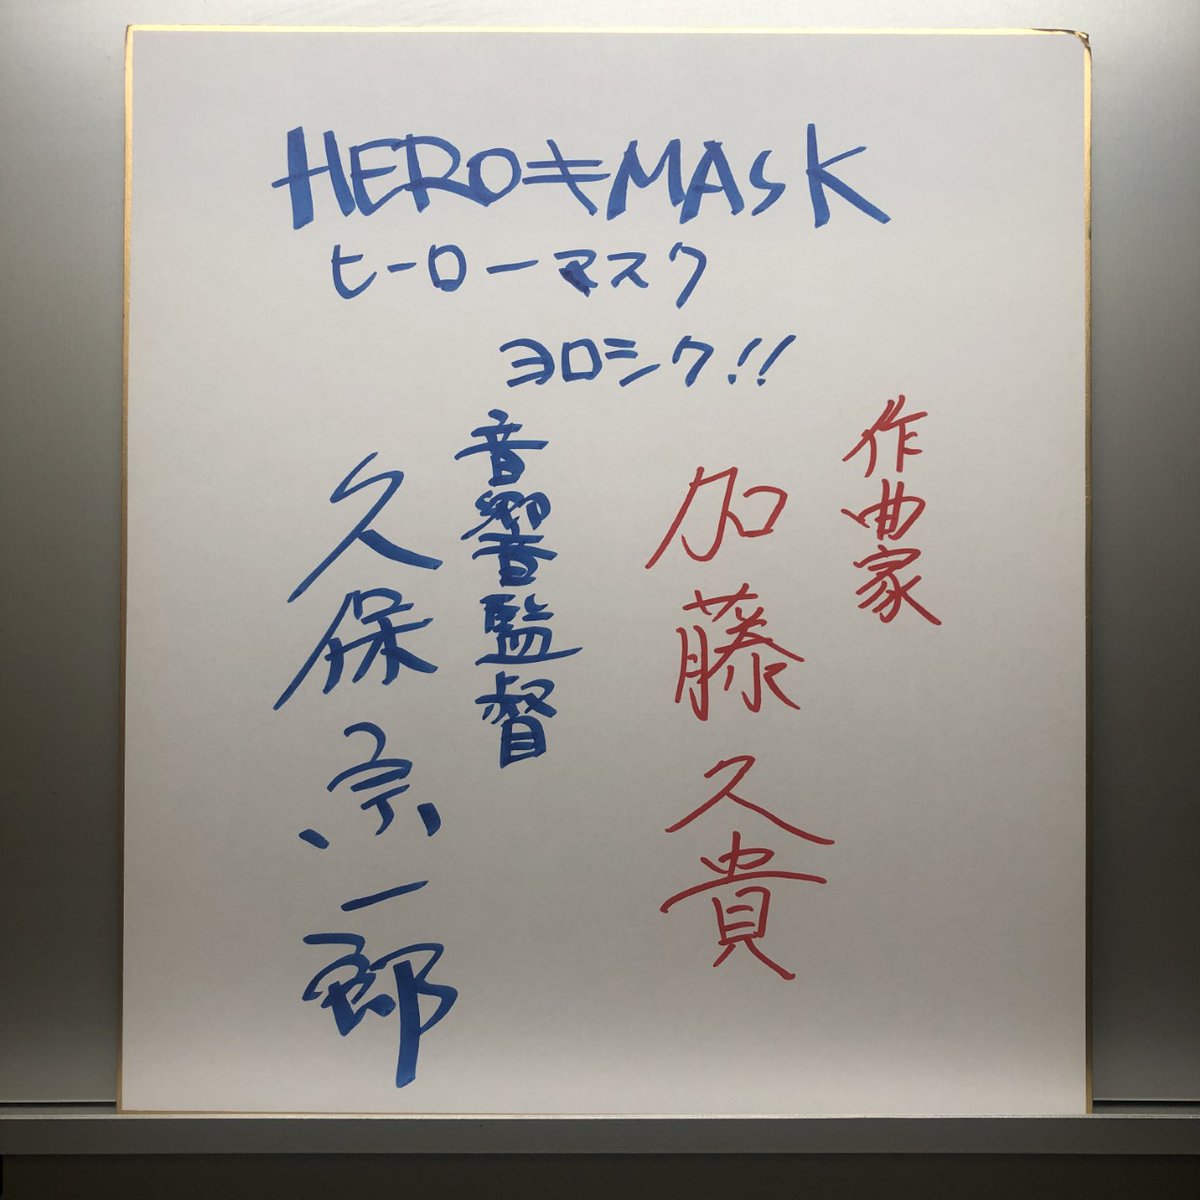 HERO=MASK
ヒーローマスク
ヨロシク!!
作曲家
加藤久貴
音響監督
久保宗一郎